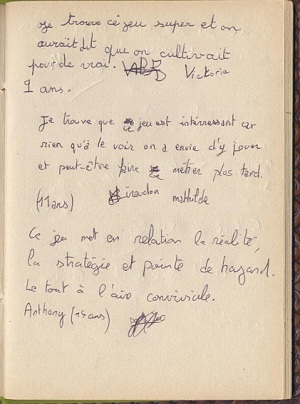 Je trouve ce jeu super et on
aurait dit que on cultivait
pour de vrai. Victoria
9 ans.
Je trouve que ce jeu est intérressant car
rien qu'à le voir on a envie d'y jouer
et peut-être faire ce métier plus tard.
(11 ans) mathilde
Ce jeu met en relation la réalité,
la stratégie et pointe de hazard.
Le tout à l'air conviviale.
Anthony (14 ans)